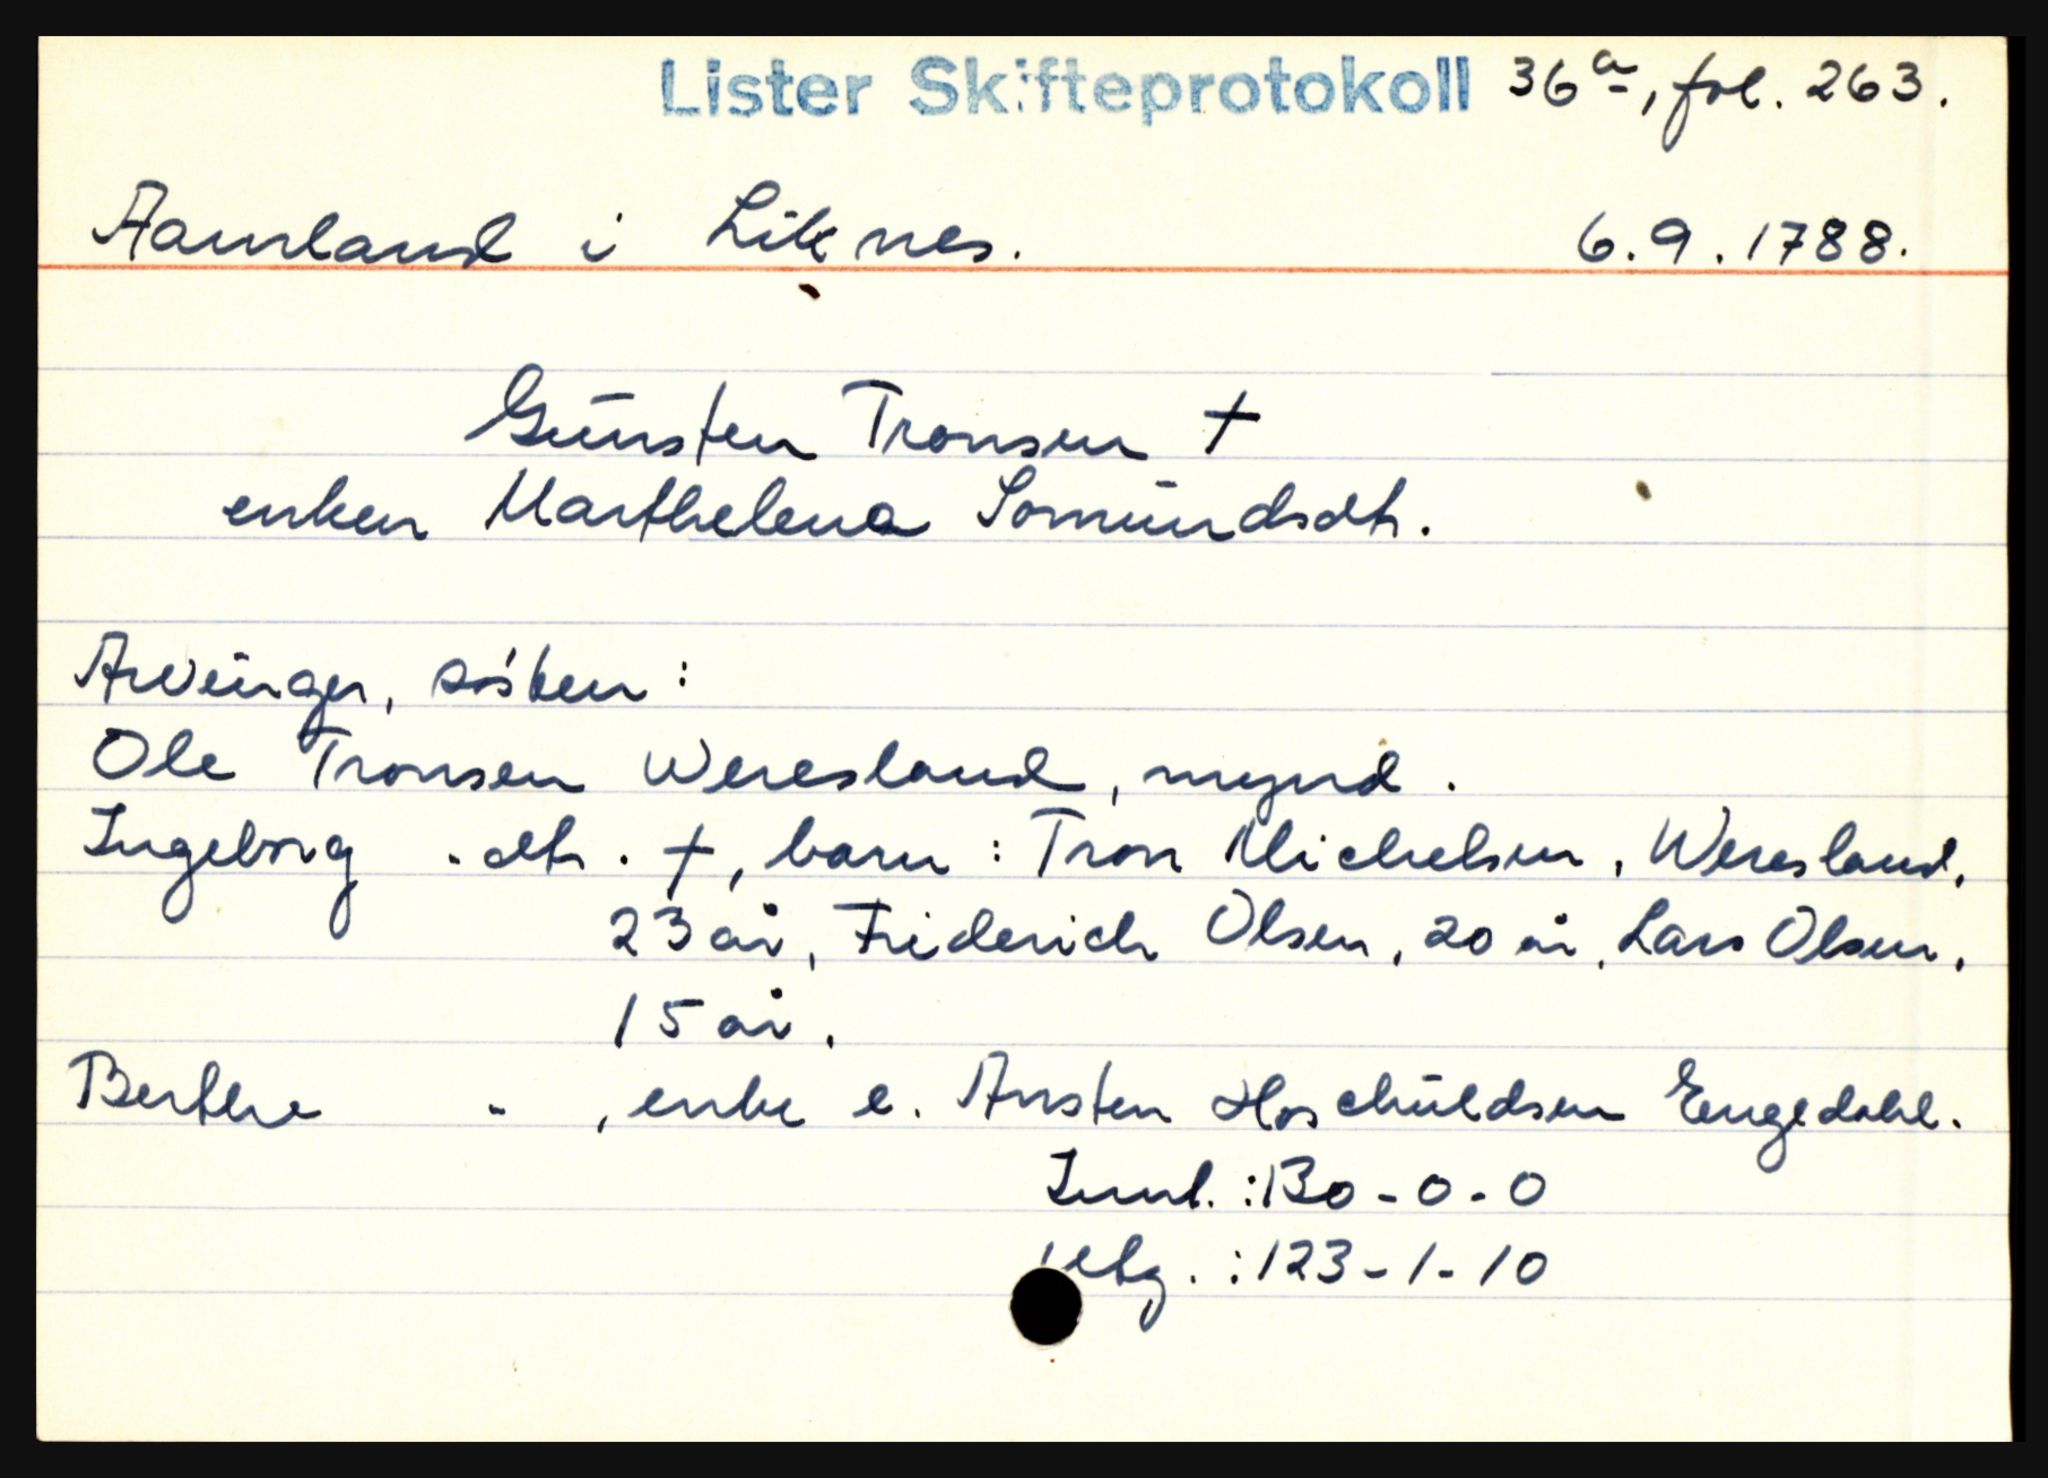 Lister Skifteprotokoll 36ª, fol. 263.
Aamland i Liknes. 6.9.1788.
Gunsten Tronsen †
enken Marthelena Somundsdtr.
Arvinger, søsken:
Ole Tronsen Weresland, mynd.
Ingeborg -dtr. †, barn: Tron Michelsen, Weresland,
23 år, Friderich Olsen, 20 år, Lars Olsen,
15 år,
Berthe - , enke e. Ansten Hoschuldsen Eengedahl.
Innt.: 130-0-0
utg.: 123-1-10